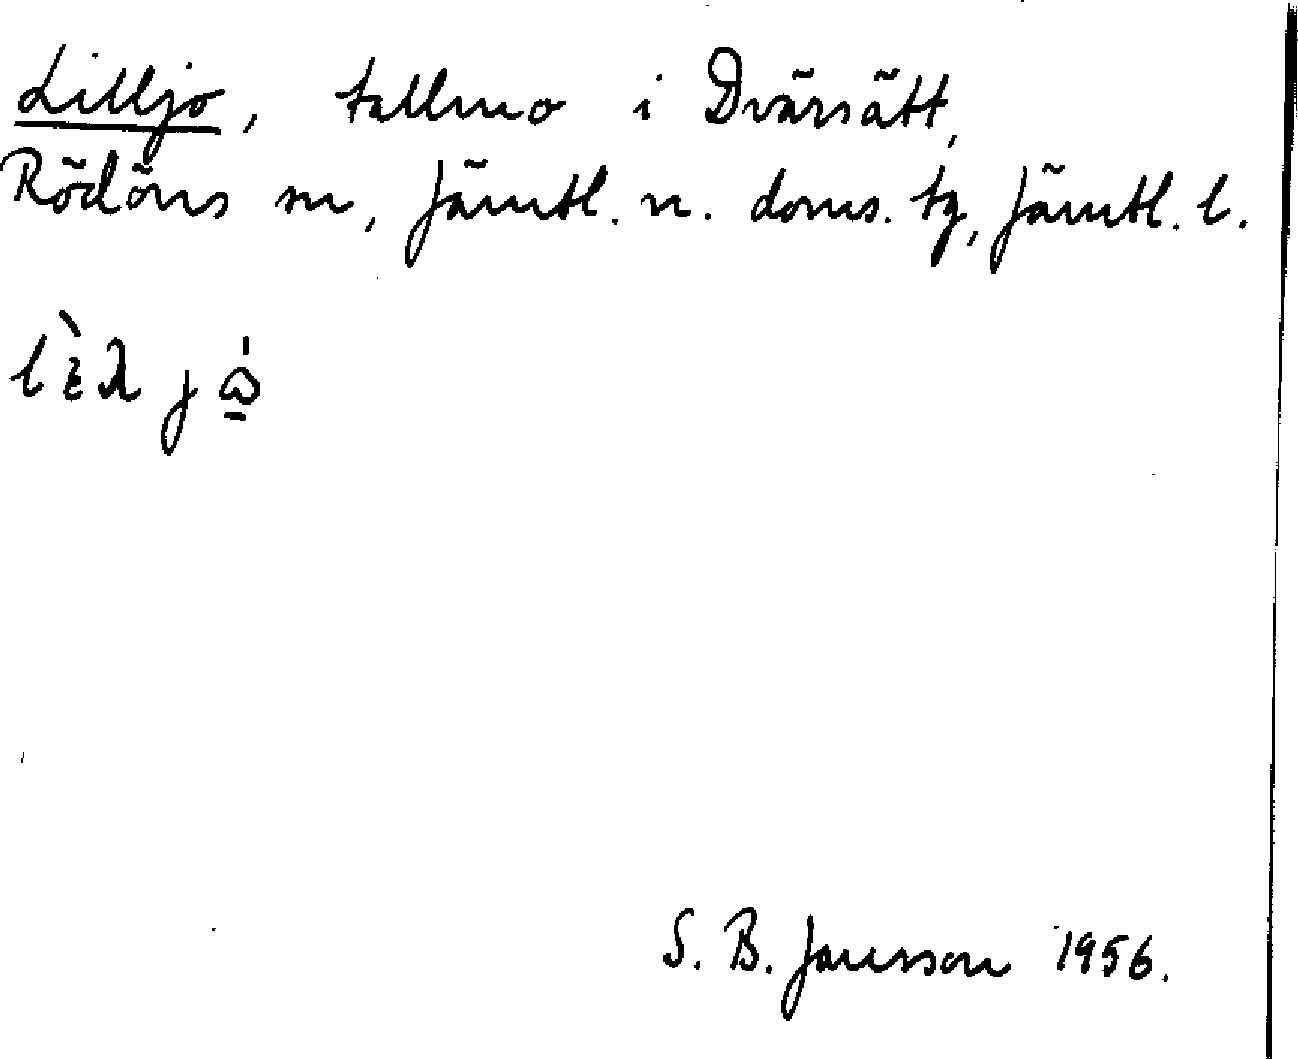 Lilljo, tallmo i Dvärsätt,
Rödöns sn, Jämtl. n. doms. tg, Jämtl. l.
S. B. Jansson 1956.